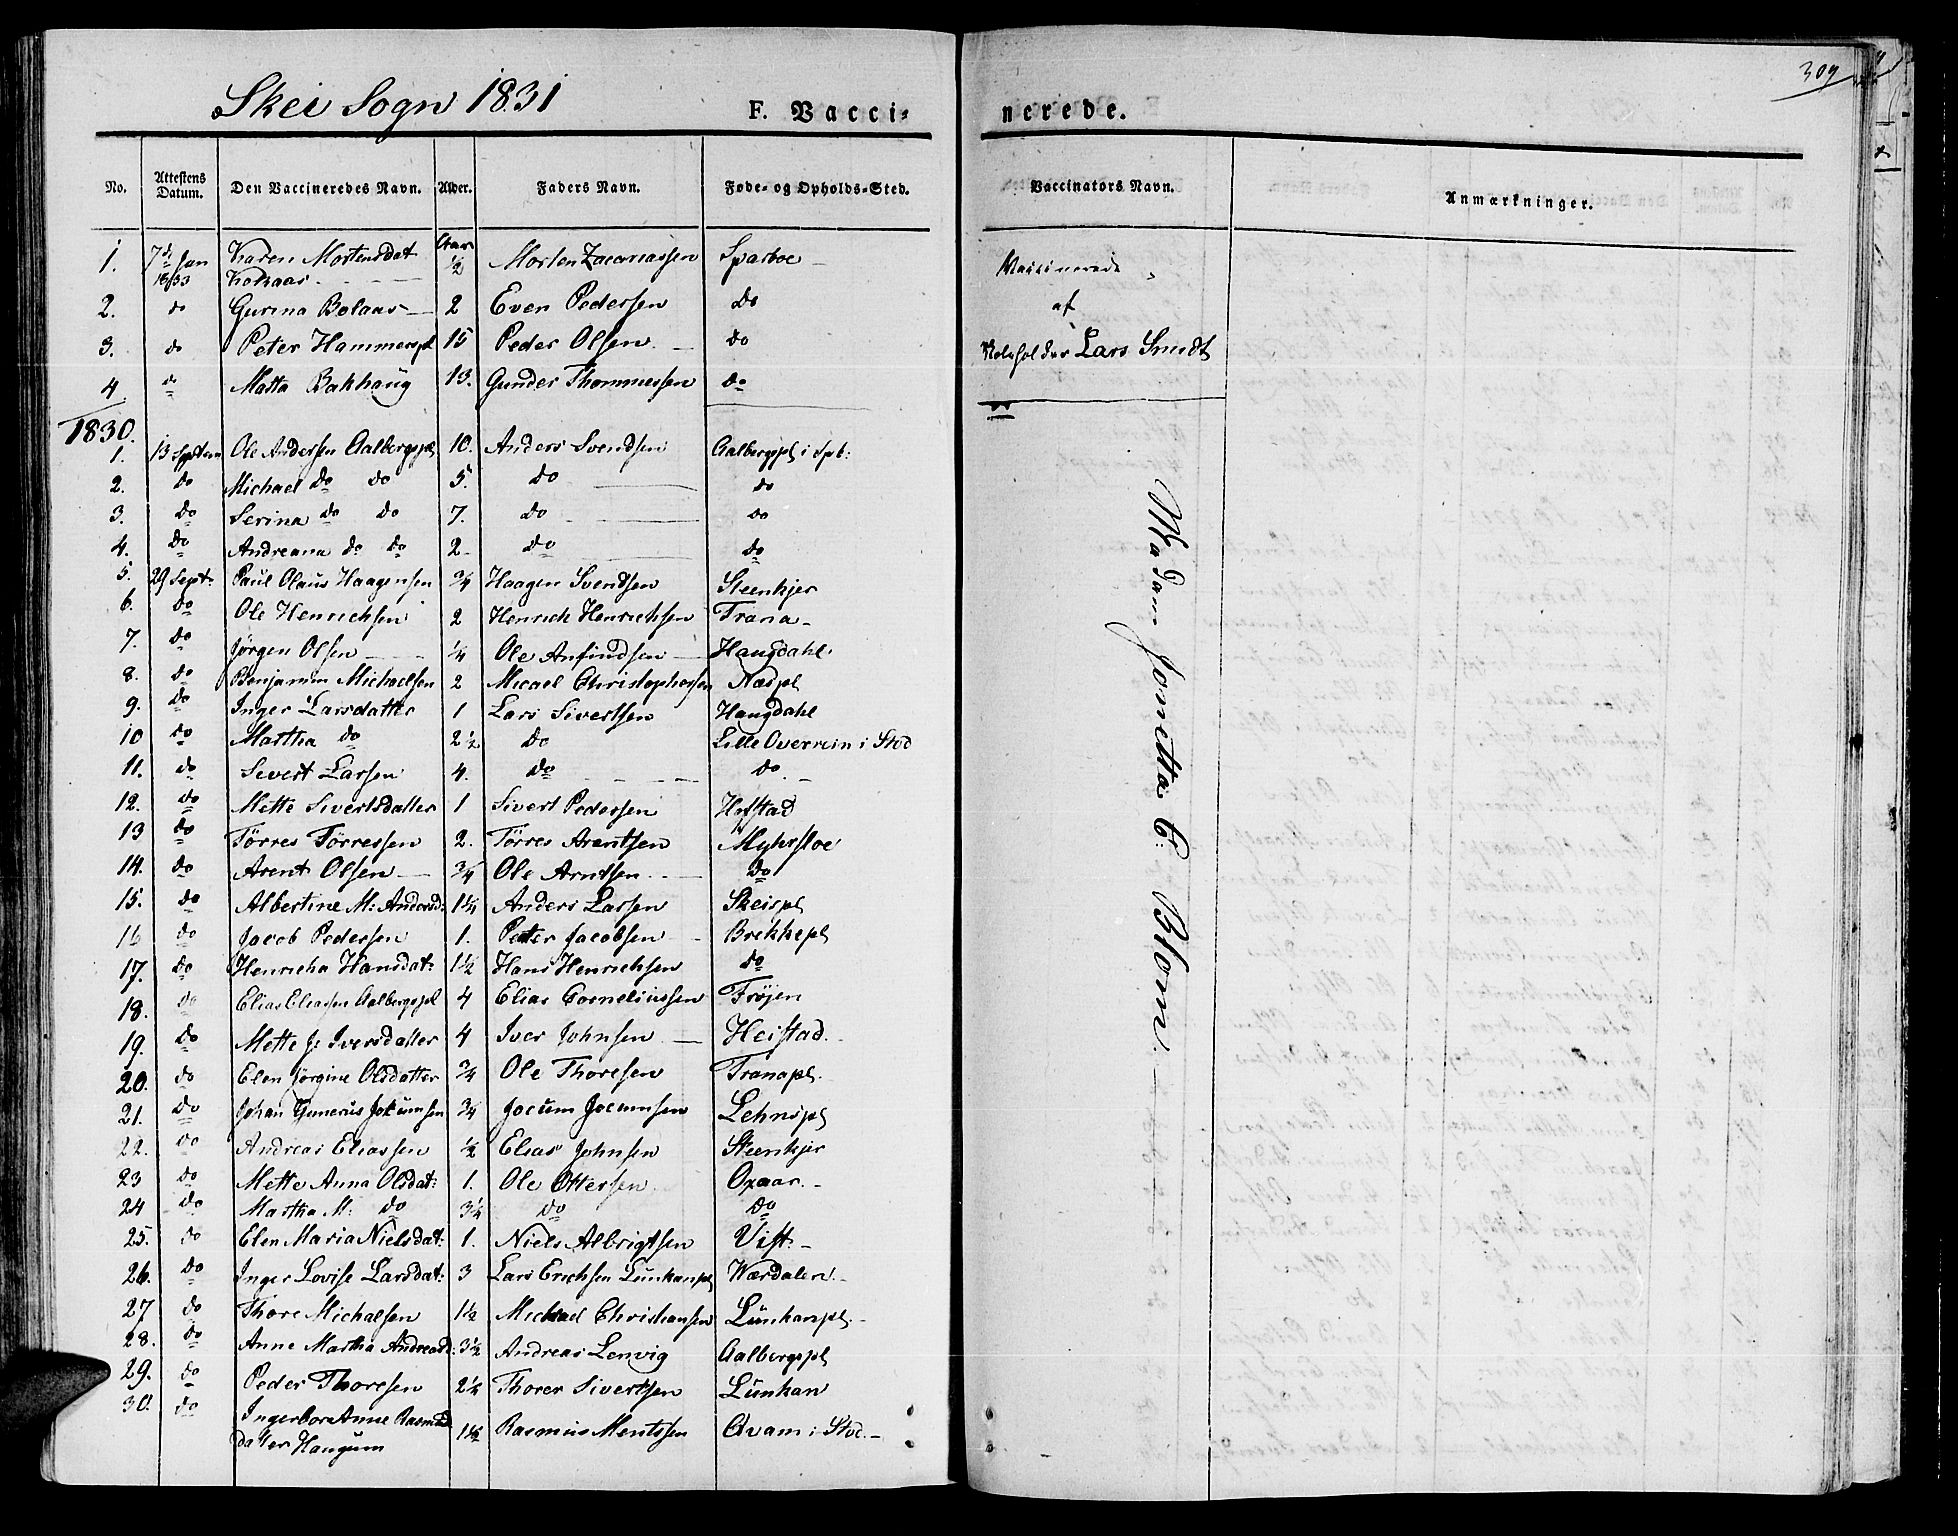 Skei Sogn 1831 F. Vacci- nerede. 309
No. Attestens Datum. Den Vaccineredes Navn. Alder. Faders Navn. Føde- og Opholds-Sted. Vaccinators Navn. Anmærkninger.
1. 7de Jan 1833 Karen Mortensdat Aar ½ Morten Zacariassen Sparboe Vaccinerede
af
2. do Gurina Bolaas 2 Even Pedersen Do
3. do Peter Hammerspl 15 Peder Olsen do Lars Smidt
4 do Matta Bakhaüg 13. Gunder Thommessen do
1830.
1. 13 Septem Ole Andersen Aalbergspl 10. Anders Svendsen Aalbergspl i Spb:
2. do Michael do do 5. do do
3. do Serina do do 7. do do
4. do Andreana do do 2 do do
5. 29 Sept: Paul Olaus Haagensen ¾ Haagen Svendsen Steenkjer
6. do Ole Henrichsen 2 Henrich Henrichsen Trana
7. do Jørgen Olsen ¼ Ole Anfindsen Haugdahl
8. do Benjamin Michaelsen 2 Micael Christophersen Næspl
9. do Inger Larsdatter 1 Lars Sivertsen Haugdahl
10 do Martha do 2½ do Lille Overrein i Stod
11. do Sivert Larsen 4. do do
12. do Mette Sivertsdatter 1 Sivert Pedersen Hofstad
13 do Tørres Tørressen 2. Tørres Arentsen Myhrsloe
14. do Arent Olsen ¾ Ole Arntsen do
15. do Albertine M: Andersd: 1¼ Anders Larsen Skeispl
16 do Jacob Pedersen 1. Peter Jacobsen Brekkepl
17. do Henricha Hansdat: 1½ Hans Henrichsen do
18. do Elias Eliassen Aalbergspl 4 Elias Corneliussen Frøjen
19. do Mette J: Iversdatter 4 Iver Johnsen Heistad
20. do Elen Jørgine Olsdatter ¾ Ole Thoresen Tranapl.
21. do Johan Gunerüs Jokumsen ¾ Jocum Jocumsen Lehnspl
22. do Andreas Eliassen ½ Elias Johnsen Steenkjer
23 do Mette Anna Olsdat: 1. Ole Ottersen Oxaar.
24 do Martha M: do 3¼ do do
25. do Elen Maria Nielsdat: 1. Niels Albrigtsen Vist.
26. do Inger Lovise Larsdat: 3 Lars Erichsen Lünkanpl Wærdalen.
27 do Thore Michalsen 1½ Michael Christiansen Lünkanpl.
28. do Anne Martha Andreasd: 3½ Andreas Lenvig Aalbergspl
29. do Peder Thoresen 2¼ Thorer Sivertsen Lünkan
30. do Ingerbor Anne Rasmus
datter Haugum Rasmus Mentssen Qvam i Stod.
Madam Jonetta C: Blom